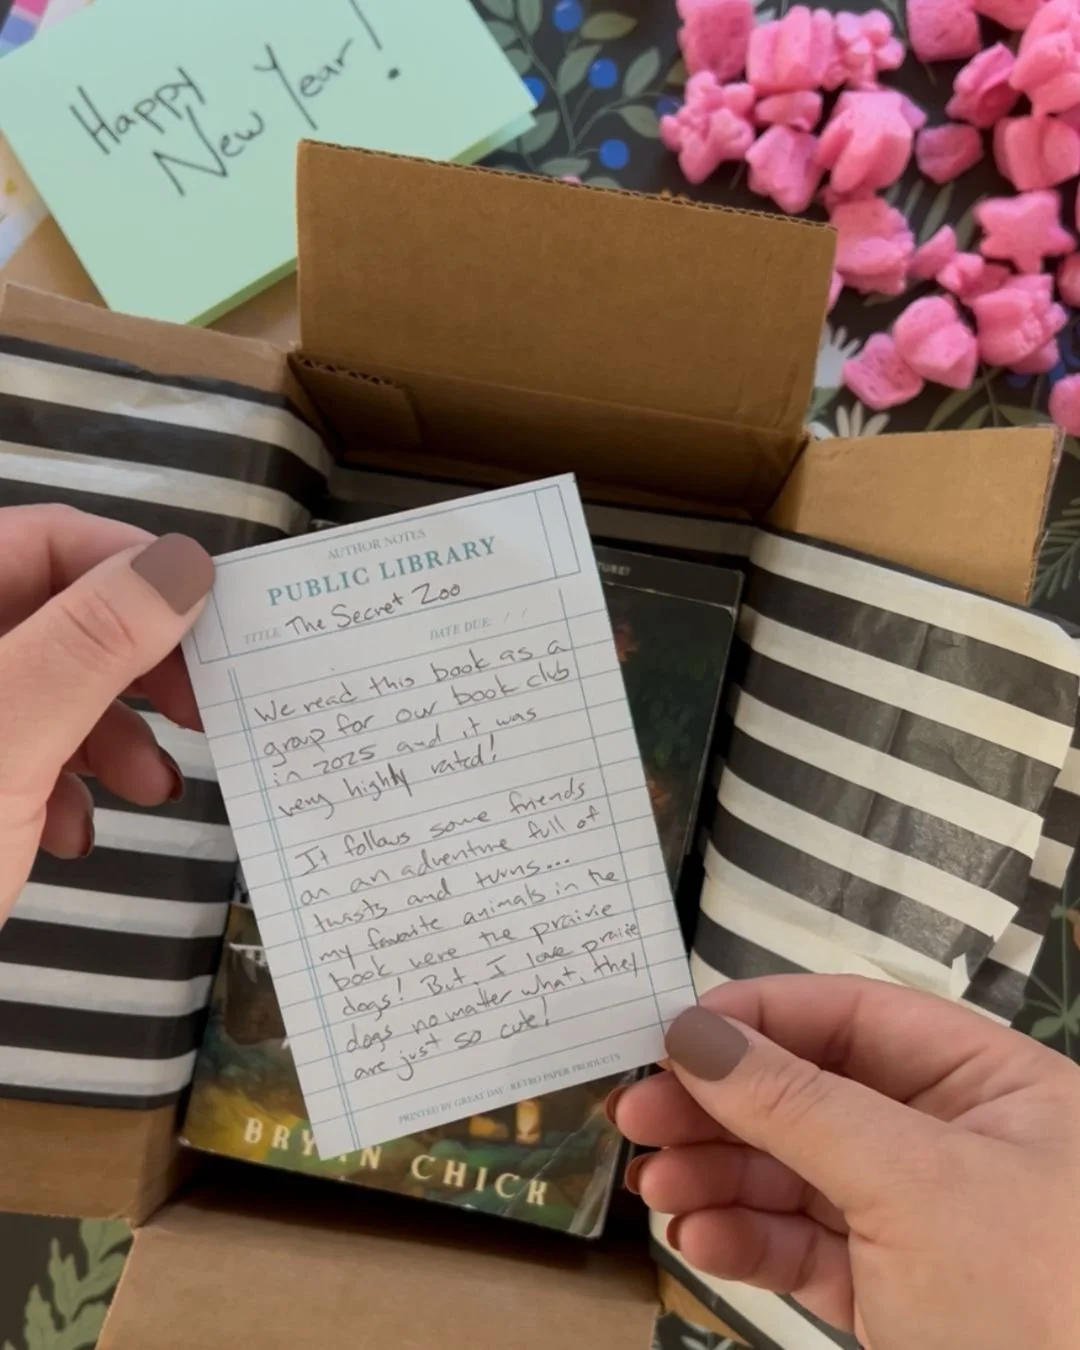 Happy
New Year!
TURE!
AUTHOR NOTES
PUBLIC LIBRARY
TITLE The Secret Zoo
DATE DUE / /
We read this book as a
group for our book club
in 2025 and it was
very highly rated!
It follows some friends
on an adventure full of
twists and turns...
my favorite animals in the
book were the prairie
dogs! But, I love prairie
dogs no matter what, they
are just so cute!
PRINTED BY GREAT DAY · RETRO PAPER PRODUCTS
BRYAN CHICK